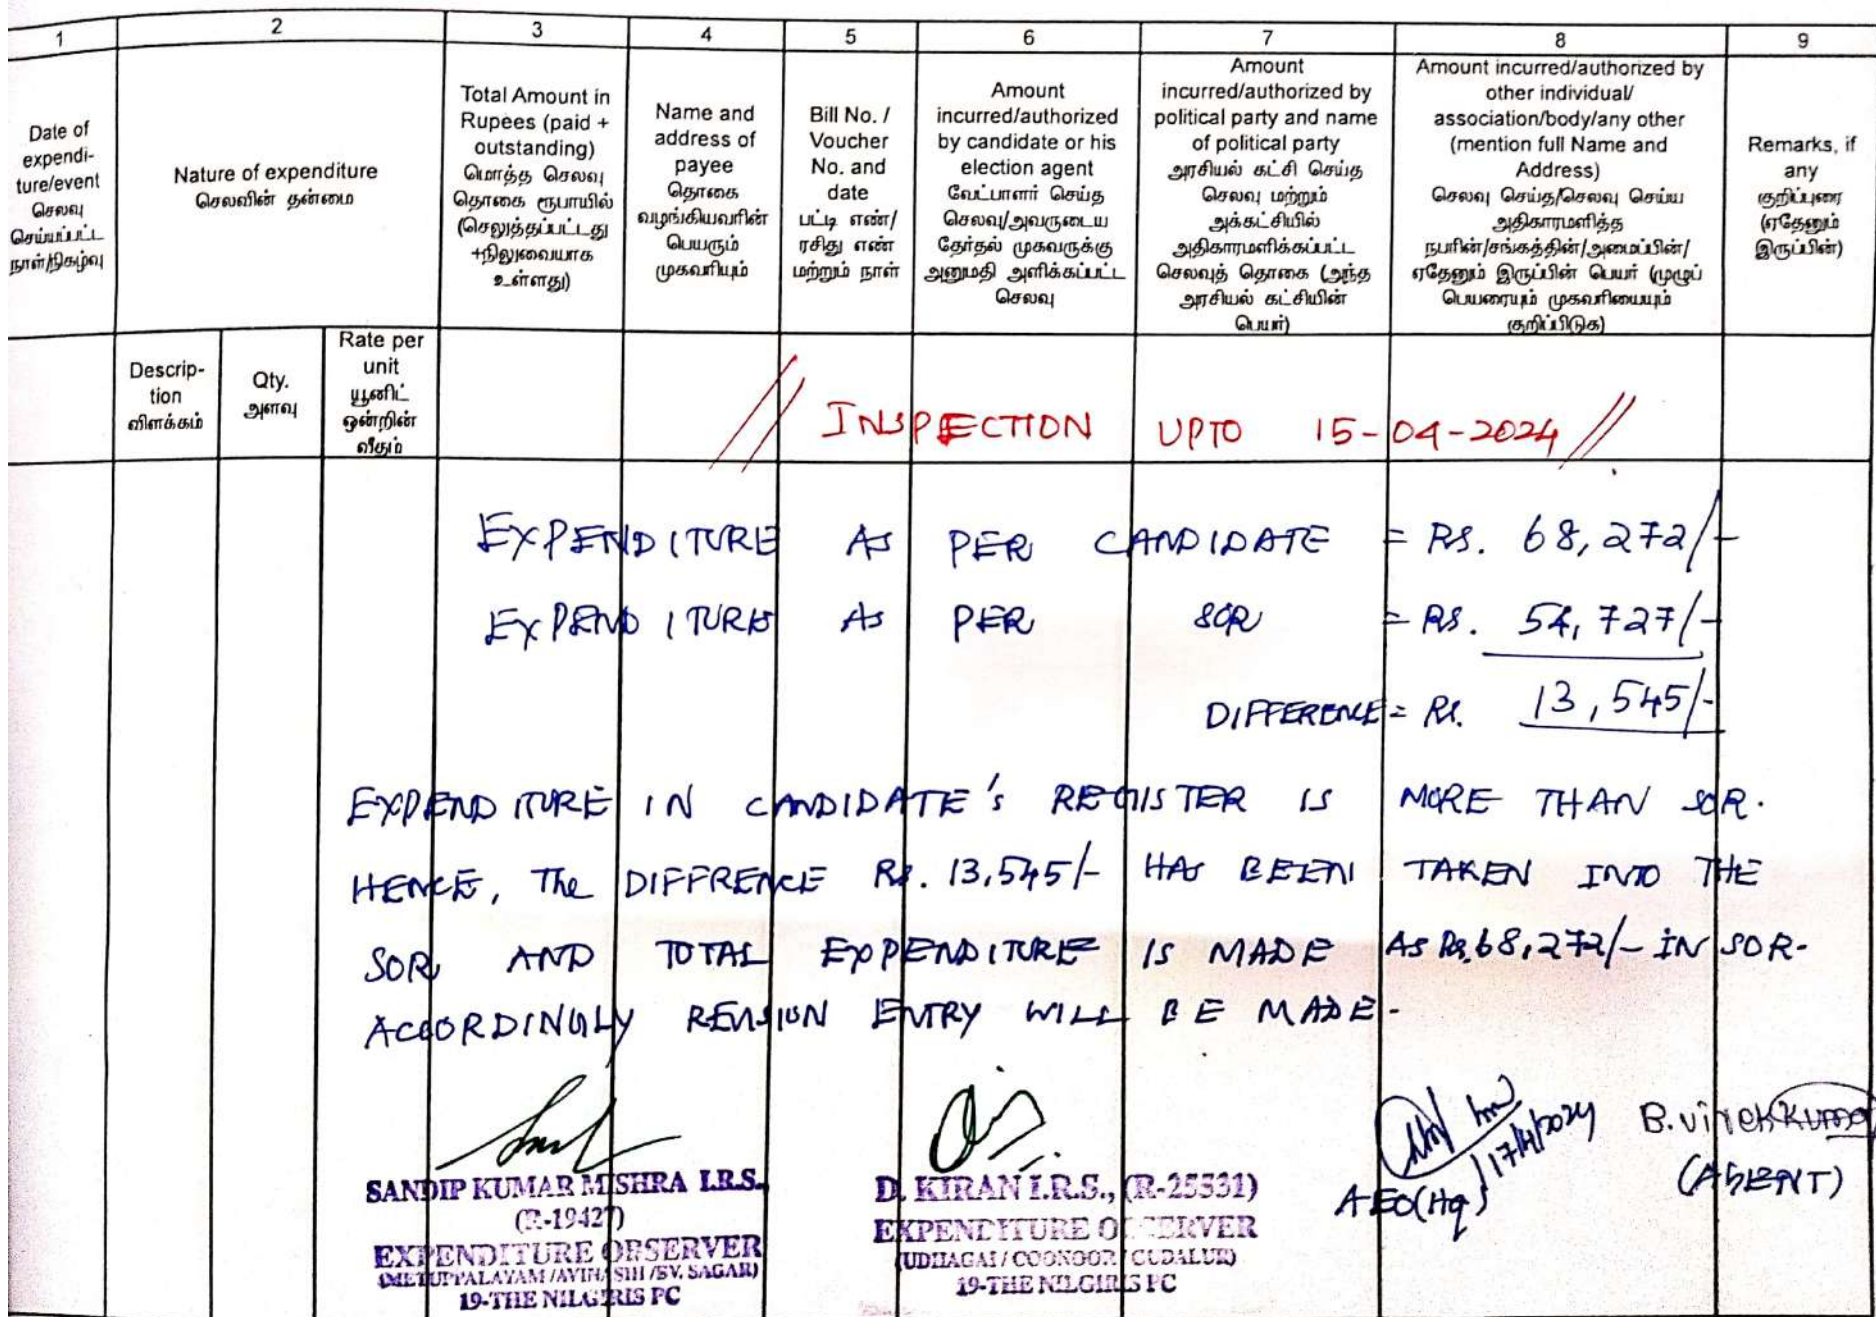 1 2 3 4 5 6 7 8 9
Date of
expendi-
ture/event
செலவு
செய்யப்பட்ட
நாள்/நிகழ்வு
Nature of expenditure
செலவின் தன்மை
Total Amount in
Rupees (paid +
outstanding)
மொத்த செலவு
தொகை ரூபாயில்
(செலுத்தப்பட்டது
+நிலுவையாக
உள்ளது)
Name and
address of
payee
தொகை
வழங்கியவரின்
பெயரும்
முகவரியும்
Bill No. /
Voucher
No. and
date
பட்டி எண்/
ரசிது எண்
மற்றும் நாள்
Amount
incurred/authorized
by candidate or his
election agent
வேட்பாளர் செய்த
செலவு/அவருடைய
தேர்தல் முகவருக்கு
அனுமதி அளிக்கப்பட்ட
செலவு
Amount
incurred/authorized by
political party and name
of political party
அரசியல் கட்சி செய்த
செலவு மற்றும்
அக்கட்சியில்
அதிகாரமளிக்கப்பட்ட
செலவுத் தொகை (அந்த
அரசியல் கட்சியின்
பெயர்)
Amount incurred/authorized by
other individual/
association/body/any other
(mention full Name and
Address)
செலவு செய்த/செலவு செய்ய
அதிகாரமளித்த
நபரின்/சங்கத்தின்/அமைப்பின்/
ஏதேனும் இருப்பின் பெயர் (முழுப்
பெயரையும் முகவரியையும்
குறிப்பிடுக)
Remarks, if
any
குறிப்புரை
(ஏதேனும்
இருப்பின்)
Descrip-
tion
விளக்கம்
Qty.
அளவு
Rate per
unit
யூனிட்
ஒன்றின்
வீதம்
// INSPECTION UPTO 15-04-2024 //
EXPENDITURE AS PER CANDIDATE = RS. 68,272/-
EXPENDITURE AS PER SOR = RS. 54,727/-
DIFFERENCE = RS. 13,545/-
EXPENDITURE IN CANDIDATE's REGISTER IS MORE THAN SOR.
HENCE, The DIFFRENCE RS. 13,545/- HAS BEEN TAKEN INTO THE
SOR AND TOTAL EXPENDITURE IS MADE AS RS.68,272/- IN SOR.
ACCORDINGLY REVISION ENTRY WILL BE MADE.
SANDIP KUMAR MISHRA I.R.S.,
(R-19427)
EXPENDITURE OBSERVER
(METUPPALAYAM /AVINASIH /BV. SAGAR)
19-THE NILGIRIS PC
D. KIRAN I.R.S., (R-25531)
EXPENDITURE OBSERVER
(UDHAGAI / COONOOR / GUDALUR)
19-THE NILGIRIS PC
17/4/2024
AEO(Hq)
B.Vivek Kumar
(ABSENT)